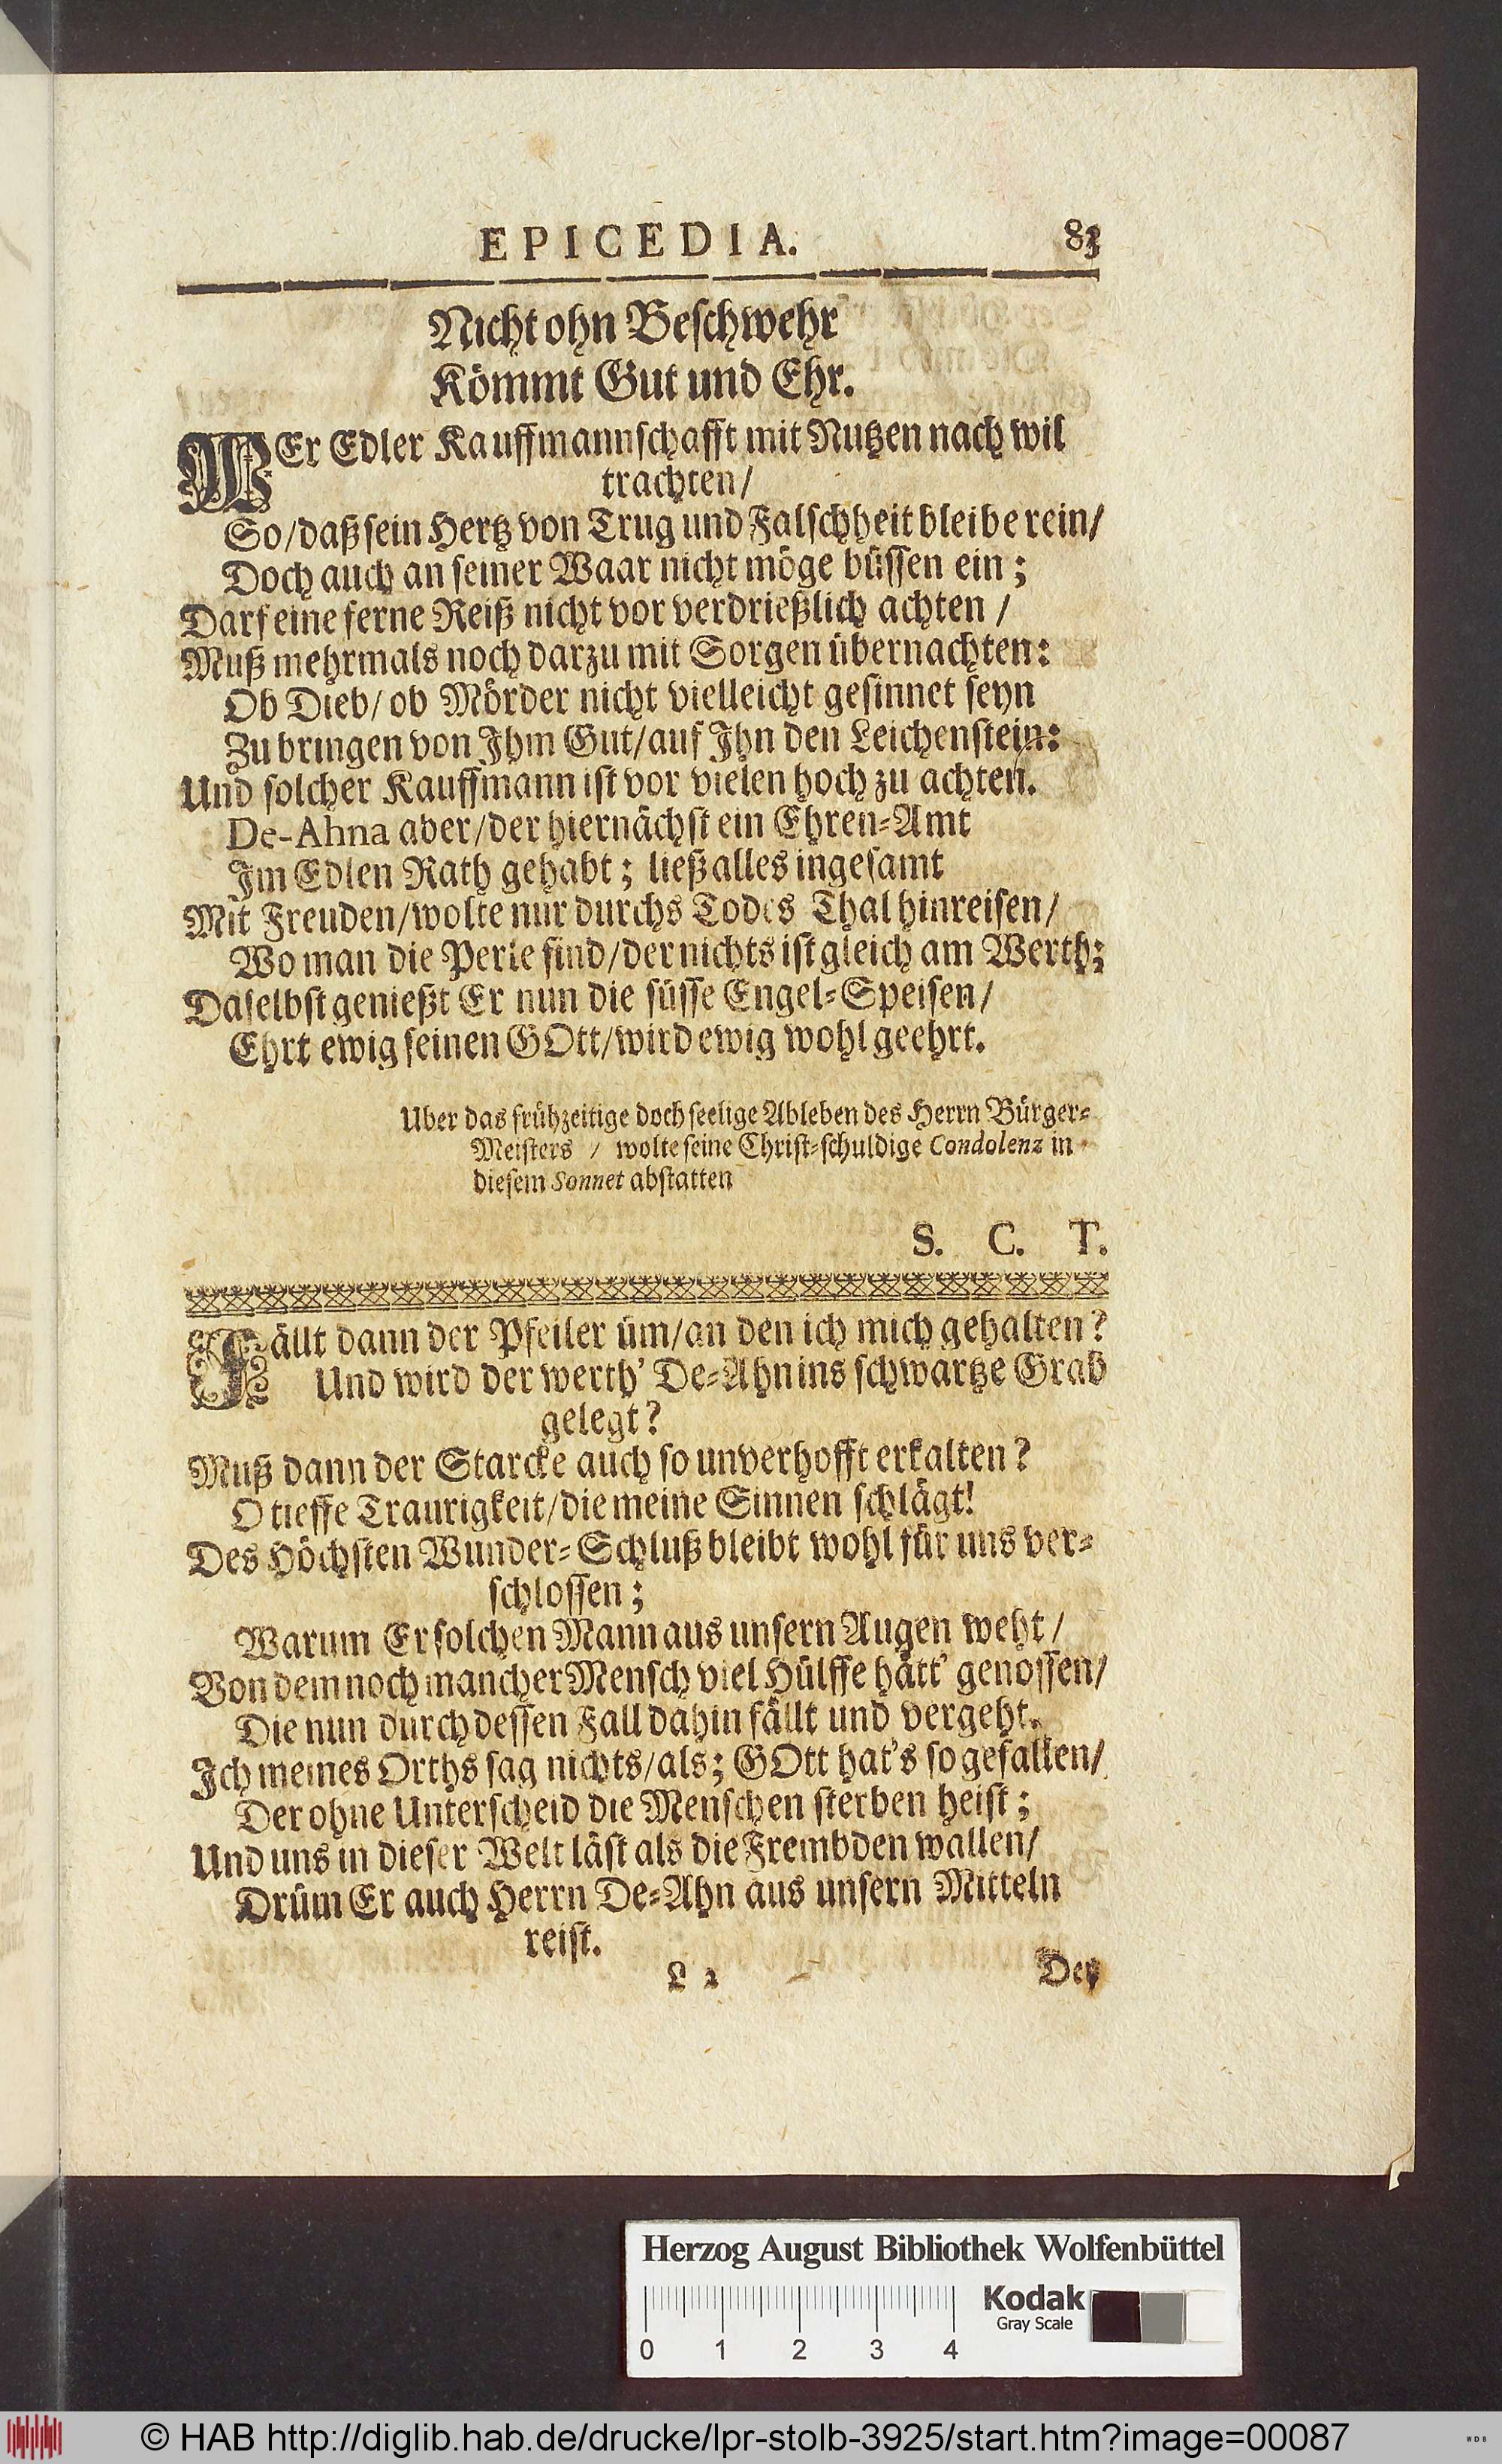 EPICEDIA. 83
Nicht ohn Beschwehr
Kömmt Gut und Ehr.
WEr Edler Kauffmannschafft mit Nutzen nach wil
trachten/
So/daß sein Hertz von Trug und Falschheit bleibe rein/
Doch auch an seiner Waar nicht möge büssen ein;
Darf eine ferne Reiß nicht vor verdrießlich achten /
Muß mehrmals noch darzu mit Sorgen übernachten:
Ob Dieb/ ob Mörder nicht vielleicht gesinnet seyn
Zu bringen von Ihm Gut/auf Ihn den Leichenstein:
Und solcher Kauffmann ist vor vielen hoch zu achten.
De-Ahna aber/der hiernächst ein Ehren-Amt
Im Edlen Rath gehabt; ließ alles ingesamt
Mit Freuden/wolte nur durchs Todes Thal hinreisen/
Wo man die Perle find/der nichts ist gleich am Werth;
Daselbst genießt Er nun die süsse Engel-Speisen/
Ehrt ewig seinen GOtt/wird ewig wohl geehrt.
Uber das frühzeitige doch seelige Ableben des Herrn Bürger-
Meisters / wolte seine Christ-schuldige Condolenz in
diesem Sonnet abstatten
S. C. T.
Fällt dann der Pfeiler üm/an den ich mich gehalten?
Und wird der werth' De-Ahn ins schwartze Grab
gelegt?
Muß dann der Starcke auch so unverhofft erkalten?
O tieffe Traurigkeit/die meine Sinnen schlägt!
Des Höchsten Wunder-Schluß bleibt wohl für uns ver-
schlossen;
Warum Er solchen Mann aus unsern Augen weht /
Von dem noch mancher Mensch viel Hülffe hätt' genossen/
Die nun durch dessen Fall dahin fällt und vergeht.
Ich meines Orths sag nichts/als; GOtt hat's so gefallen/
Der ohne Unterscheid die Menschen sterben heist;
Und uns in dieser Welt läst als die Frembden wallen/
Drüm Er auch Herrn De-Ahn aus unsern Mitteln
reist.
L 2 Der
Herzog August Bibliothek Wolfenbüttel
Kodak
Gray Scale
0 1 2 3 4
© HAB http://diglib.hab.de/drucke/lpr-stolb-3925/start.htm?image=00087
WDB